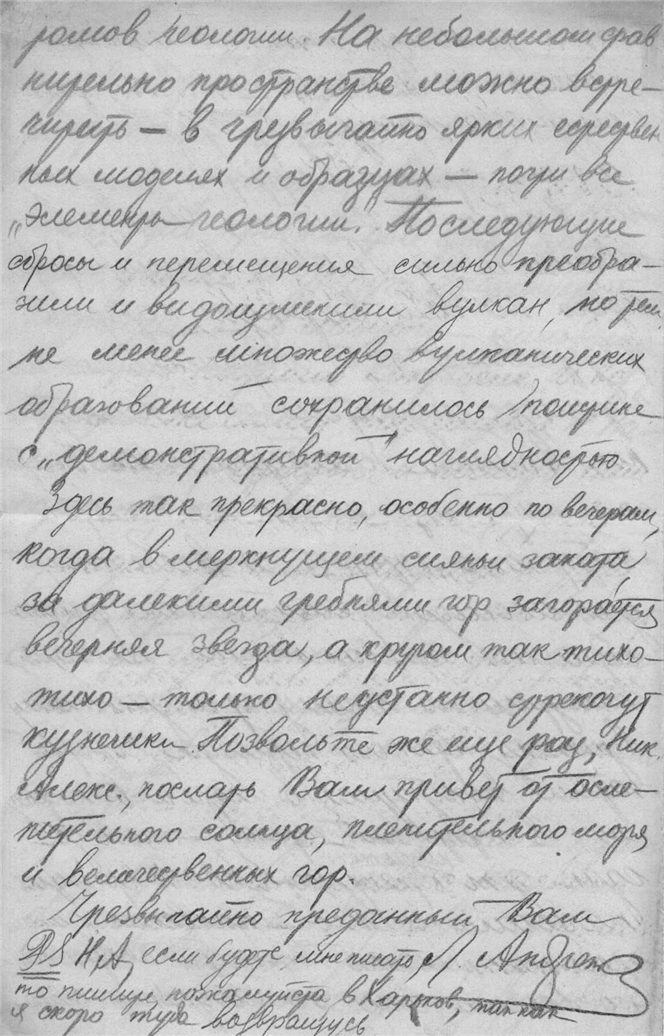 ромов геологии. На небольшом срав
нительно пространстве можно встре-
чить — в чрезвычайно ярких естествен
ных моделях и образцах — почти все
„элементы геологии“. Последующие
сбросы и перемещения сильно преобра-
зили и видоизменили вулкан, но тем
не менее множество вулканических
образований сохранилось поистине
с „демонстративной“ наглядностью
Здесь так прекрасно, особенно по вечерам,
когда в меркнущем сияньи заката
за далекими гребнями гор загорается
вечерняя звезда, а кругом так тихо-
тихо — только неустанно стрекочут
кузнечики. Позвольте же еще раз, Ник.
Алекс., послать Вам привет от осле-
пительного солнца, пленительного моря
и величественных гор.
Чрезвычайно преданный Вам
PS Н.А, если будете мне писать Л.
то пишите, пожалуйста в Харьков, так как
я скоро туда возвращусь